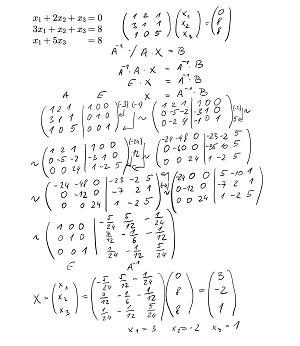 x₁ + 2x₂ + x₃ = 0
3x₁ + x₂ + x₃ = 8
x₁ + 5x₃ = 8
(1 2 1 / 3 1 1 / 1 0 5) (x₁ / x₂ / x₃) = (0 / 8 / 8)
A⁻¹ · / A · X = B
A⁻¹ · A · X = A⁻¹ · B
E · X = A⁻¹ · B
X = A⁻¹ · B
A E
(1 2 1 | 1 0 0 / 3 1 1 | 0 1 0 / 1 0 5 | 0 0 1) (-3) (-1) ~ (1 2 1 | 1 0 0 / 0 -5 -2 | -3 1 0 / 0 -2 4 | -1 0 1) ~
~ (1 2 1 | 1 0 0 / 0 -5 -2 | -3 1 0 / 0 0 24 | 1 -2 5) (-24) 12 ~ (-24 -48 0 | -23 -2 5 / 0 -60 0 | -35 10 5 / 0 0 24 | 1 -2 5)
~ (-24 -48 0 | -23 -2 5 / 0 -12 0 | -7 2 1 / 0 0 24 | 1 -2 5) ~ (-24 0 0 | 5 -10 1 / 0 -12 0 | -7 2 1 / 0 0 24 | 1 -2 5)
~ (1 0 0 | -5/24 5/12 -1/24 / 0 1 0 | 7/12 -1/6 -1/12 / 0 0 1 | 1/24 -1/12 5/24)
E A⁻¹
X = (x₁ / x₂ / x₃) = (-5/24 5/12 -1/24 / 7/12 -1/6 -1/12 / 1/24 -1/12 5/24) (0 / 8 / 8) = (3 / -2 / 1)
x₁ = 3 x₂ = -2 x₃ = 1